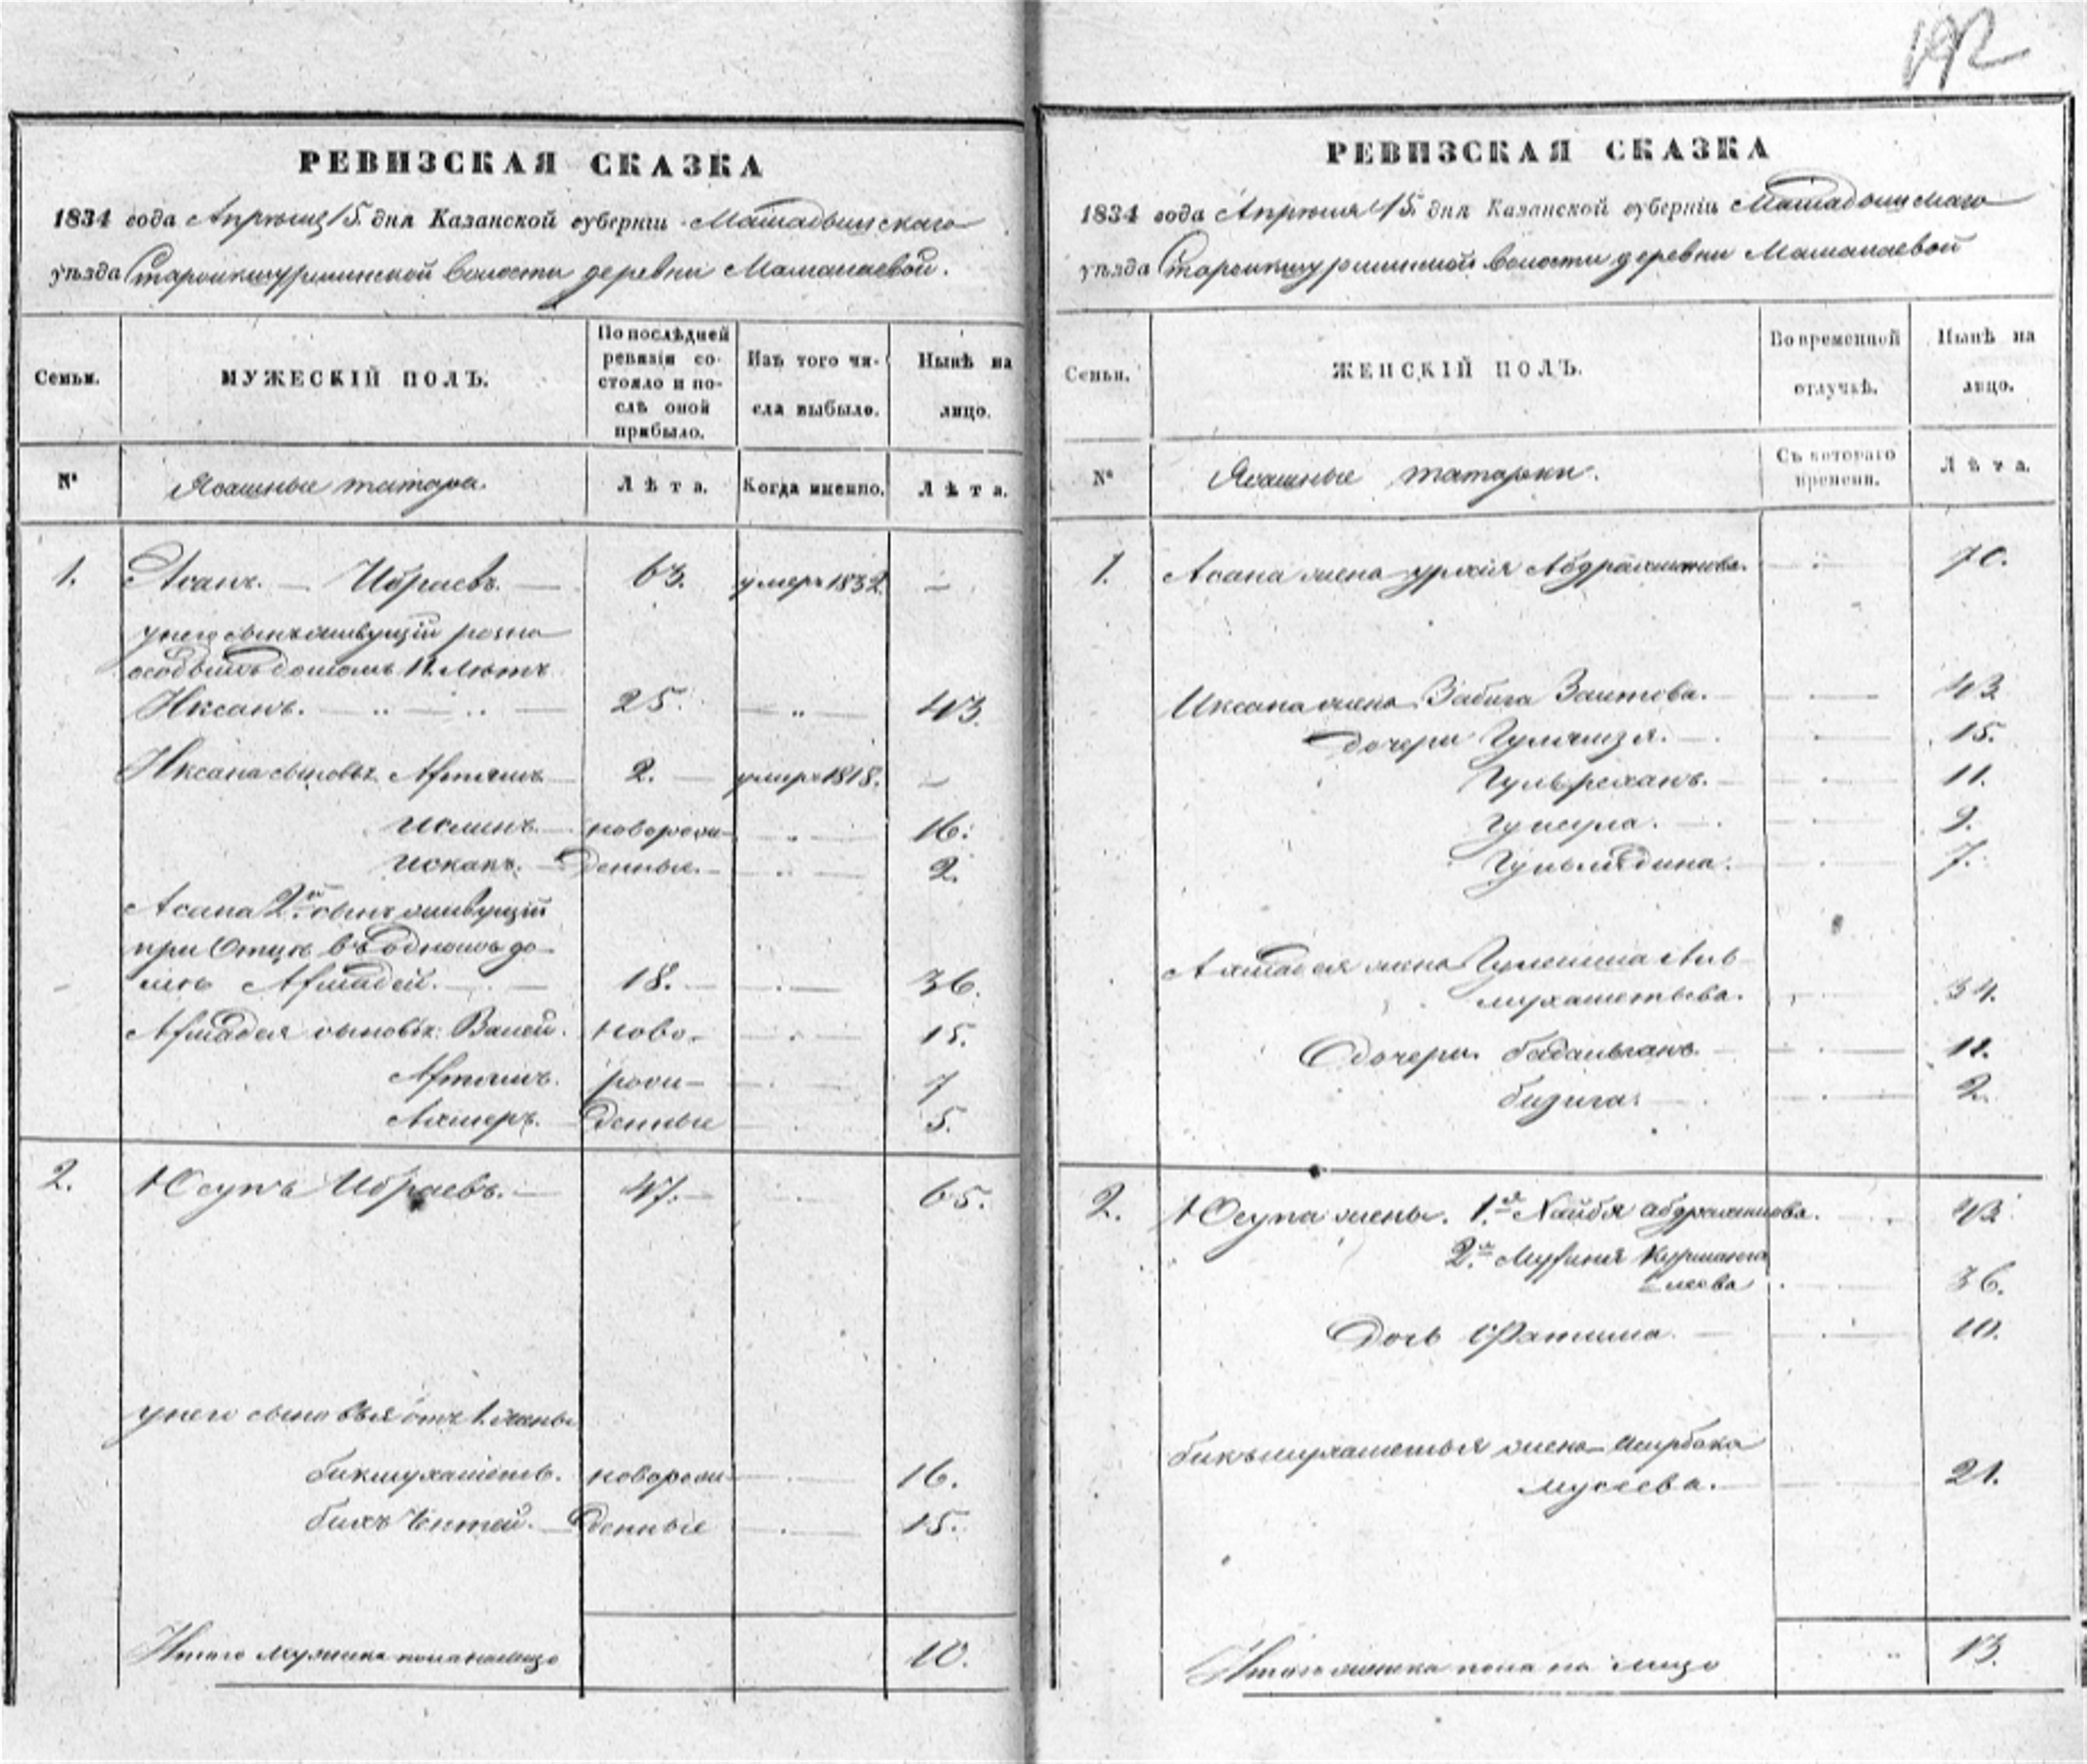 192
РЕВИЗСКАЯ СКАЗКА
1834 года Апреля 15. дня Казанской губерніи Мамадышскаго
уѣзда Староикшурминской волости деревни Машапаевой.
Семьи.
МУЖЕСКІЙ ПОЛЪ.
По послѣдней ревизіи состояло и послѣ оной прибыло.
Изъ того числа выбыло.
Нынѣ на лицо.
№
Ясашные татара.
Лѣта.
Когда именно.
Лѣта.
1. Асанъ. — Ибраевъ. — 63. умеръ 1832. —
у него сынъ живущій розно
особымъ домомъ 11. лѣтъ
Иксанъ. 25. „ 43.
Иксана сыновья Афтямъ 2. — умеръ 1818. —
Ислинъ. новорож- 16.
Исканъ. денные. 2.
Асана 2й. сынъ живущій
при Отцѣ въ одномъ до-
мѣ Ахмадей. 18. — 36.
Ахмадея сыновья: Валей. ново- 15.
Афтямъ. рож- 7
Ахмеръ. денные 5.
2. Юсупъ Ибраевъ. — 47. 65.
у него сыновья отъ 1. жены
бикмухаметь. новорож- 16.
бихъ Чентей. — денныіе 15.
Итого мужеска пола на лицо 10.
РЕВИЗСКАЯ СКАЗКА
1834 года Апреля 15. дня Казанской губерніи Мамадышскаго
уѣзда Староикшурминской волости деревни Машапаевой
Семьи.
ЖЕНСКІЙ ПОЛЪ.
Во временной отлучкѣ.
Нынѣ на лицо.
№
Ясашные татарки.
Съ котораго времени.
Лѣта.
1. Асана жена Абдрахманова. 70.
Иксана жена Забига Заитова. 43
дочери 15.
Гульреханъ. 11.
9.
7.
Ахмадея жена Аль-
мухаметьева. 34.
дочери. 11.
бизига. 2.
2. Юсупа жены. 1я Хайбя абдрахманова. 43
2я Курманга
леева 36.
дочь Фатима. 10.
бикъмухаметья жена
мусеева. 21.
Итого женска пола на лицо 13.